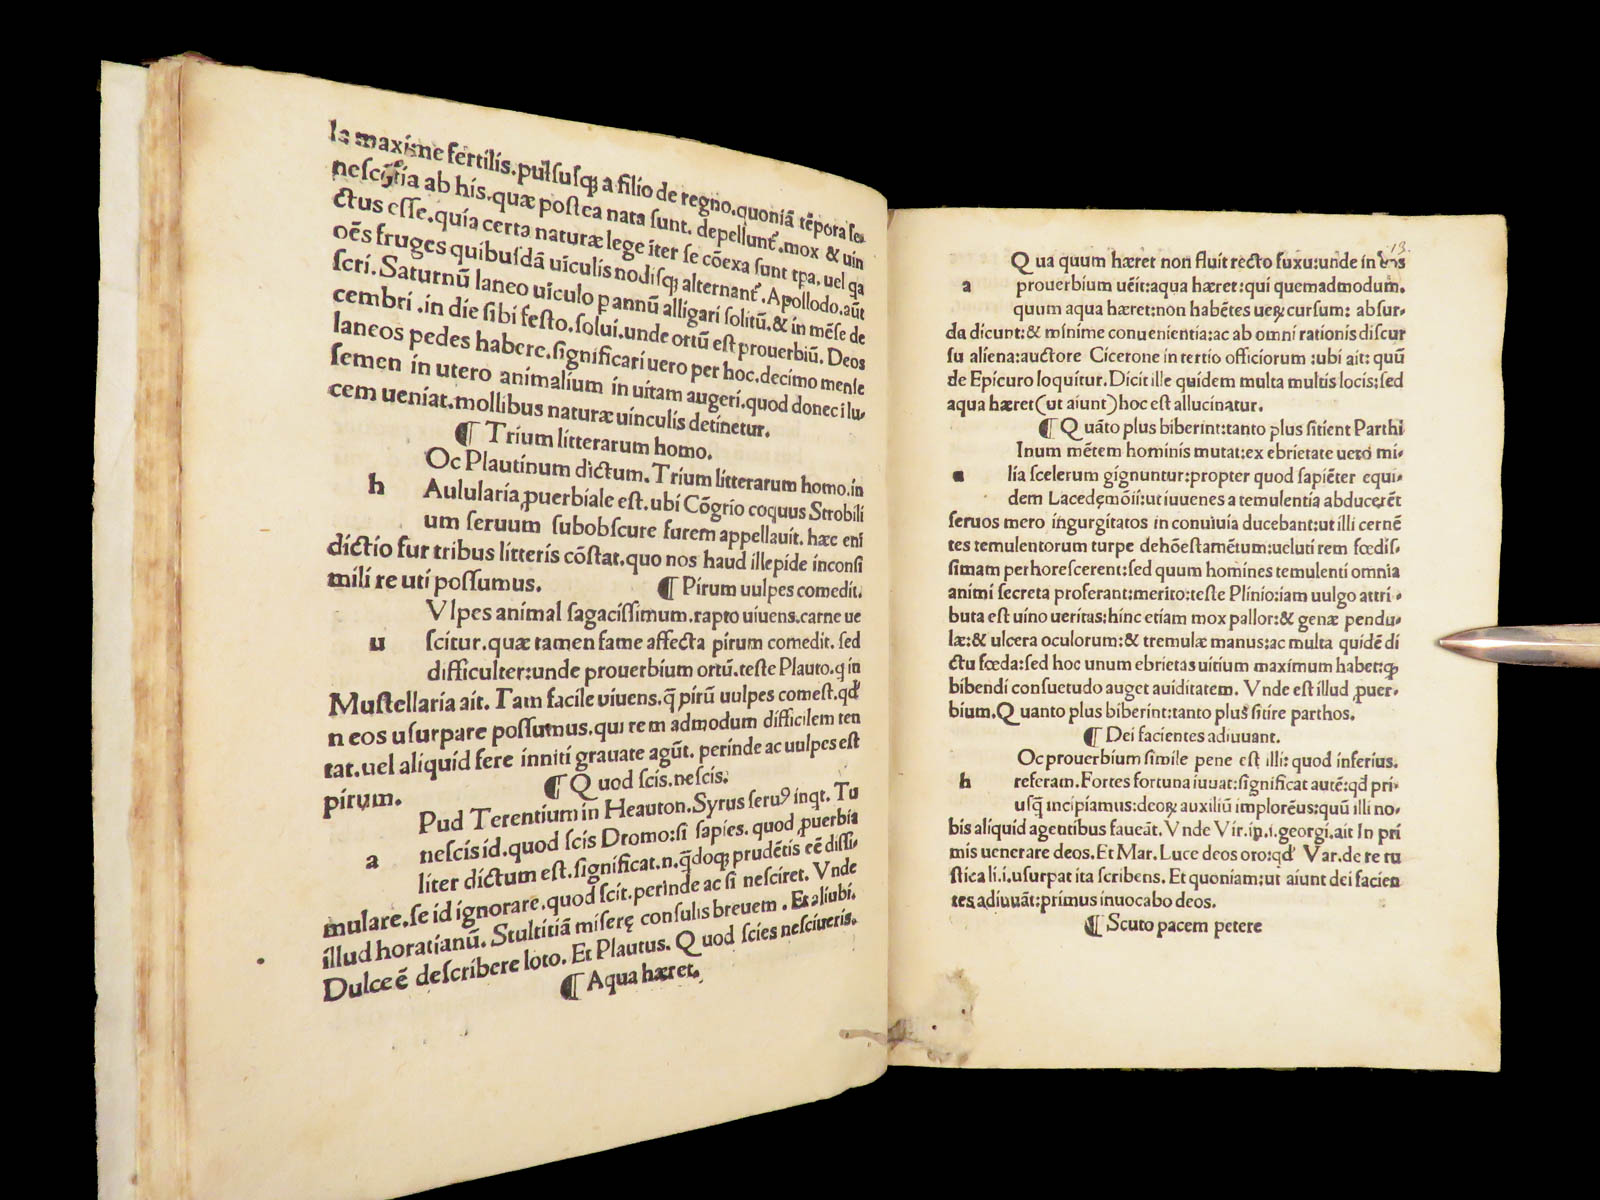 la maxime fertilis.pulsusq; a filio de regno.quoniã tẽpora se-
ab his.quæ postea nata sunt. depellunt̃.mox & uin
ctus esse.quia certa naturæ lege iter se cõexa sunt tꝑa. uel qa
oẽs fruges quibusdã uiculis nodisq; alternant̃. Apollodo.aũt
scri.Saturnũ laneo uiculo p annũ alligari solitũ.& in mẽse de
cembri.in die sibi festo.solui.unde ortũ est prouerbiũ. Deos
laneos pedes habere.significari uero per hoc.decimo mense
semen in utero animalium in uitam augeri.quod donec i lu-
cem ueniat.mollibus naturæ uinculis detinetur.
¶ Trium litterarum homo.
Oc Plautinum dictum. Trium litterarum homo.in
h Aulularia ꝓuerbiale est.ubi Cõgrio coquus Strobili
um seruum subobscure furem appellauit. hæc eni
dictio fur tribus litteris cõstat.quo nos haud illepide inconsi
mili re uti possumus. ¶ Pirum uulpes comedit.
Vlpes animal sagacissimum.rapto uiuens.carne ue
u scitur.quæ tamen fame affecta pirum comedit. sed
difficulter:unde prouerbium ortũ.teste Plauto.q in
Mustellaria ait. Tam facile uiuens.q̃ pirũ uulpes comest.qd̃
n eos usurpare possumus.qui rem admodum difficilem ten
tat.uel aliquid fere inniti grauate agũt. perinde ac uulpes est
pirum. ¶ Quod scis.nescis.
Pud Terentium in Heauton.Syrus seruꝰ inqt. Tu
a nescis id.quod scis Dromo:si sapies. quod ꝓuerbia
liter dictum est.significat.n.q̃doq; prudẽtis eẽ dissi-
mulare.se id ignorare.quod scit.perinde ac si nesciret. Vnde
illud horatianũ. Stultitiã miserę consulis breuem . Et aliubi.
Dulce ẽ describere loto. Et Plautus. Quod scies nesciueris.
¶ Aqua hæret.
13.
Qua quum hæret non fluit recto fuxu:unde in
a prouerbium uẽit:aqua hæret:qui quemadmodum.
quum aqua hæret:non habẽtes ueꝝ cursum: absur-
da dicunt:& minime conuenientia:ac ab omni rationis discur
su aliena:auctore Cicerone in tertio officiorum :ubi ait: quũ
de Epicuro loquitur.Dicit ille quidem multa multis locis:sed
aqua hæret(ut aiunt)hoc est allucinatur.
¶ Quãto plus biberint:tanto plus sitient Parthi
Inum mẽtem hominis mutat:ex ebrietate uero mi-
lia scelerum gignuntur:propter quod sapiẽter equi-
dem Lacedęmõii:ut iuuenes a temulentia abducerẽt
seruos mero ingurgitatos in conuiuia ducebant:ut illi cernẽ
tes temulentorum turpe dehõestamẽtum:ueluti rem fœdis-
simam perhorescerent:sed quum homines temulenti omnia
animi secreta proferant:merito:teste Plinio:iam uulgo attri-
buta est uino ueritas:hinc etiam mox pallor:& genæ pendu-
læ:& ulcera oculorum:& tremulæ manus:ac multa quidẽ di
ctu fœda:sed hoc unum ebrietas uitium maximum habet:ꝙ
bibendi consuetudo auget auiditatem. Vnde est illud ꝓuer-
bium.Quanto plus biberint:tanto plus sitire parthos.
¶ Dei facientes adiuuant.
Oc prouerbium simile pene est illi: quod inferius.
h referam.Fortes fortuna iuuat:significat autẽ:qd̃ pri-
usq̃ incipiamus:deoꝝ auxiliũ implorẽus:quũ illi no-
bis aliquid agentibus faueãt. Vnde Vir.in.i.georgi.ait In pri
mis uenerare deos.Et Mar. Luce deos oro:qd̃ Var.de re ru
stica li.i.usurpat ita scribens. Et quoniam:ut aiunt dei facien
tes adiuuãt:primus inuocabo deos.
¶ Scuto pacem petere